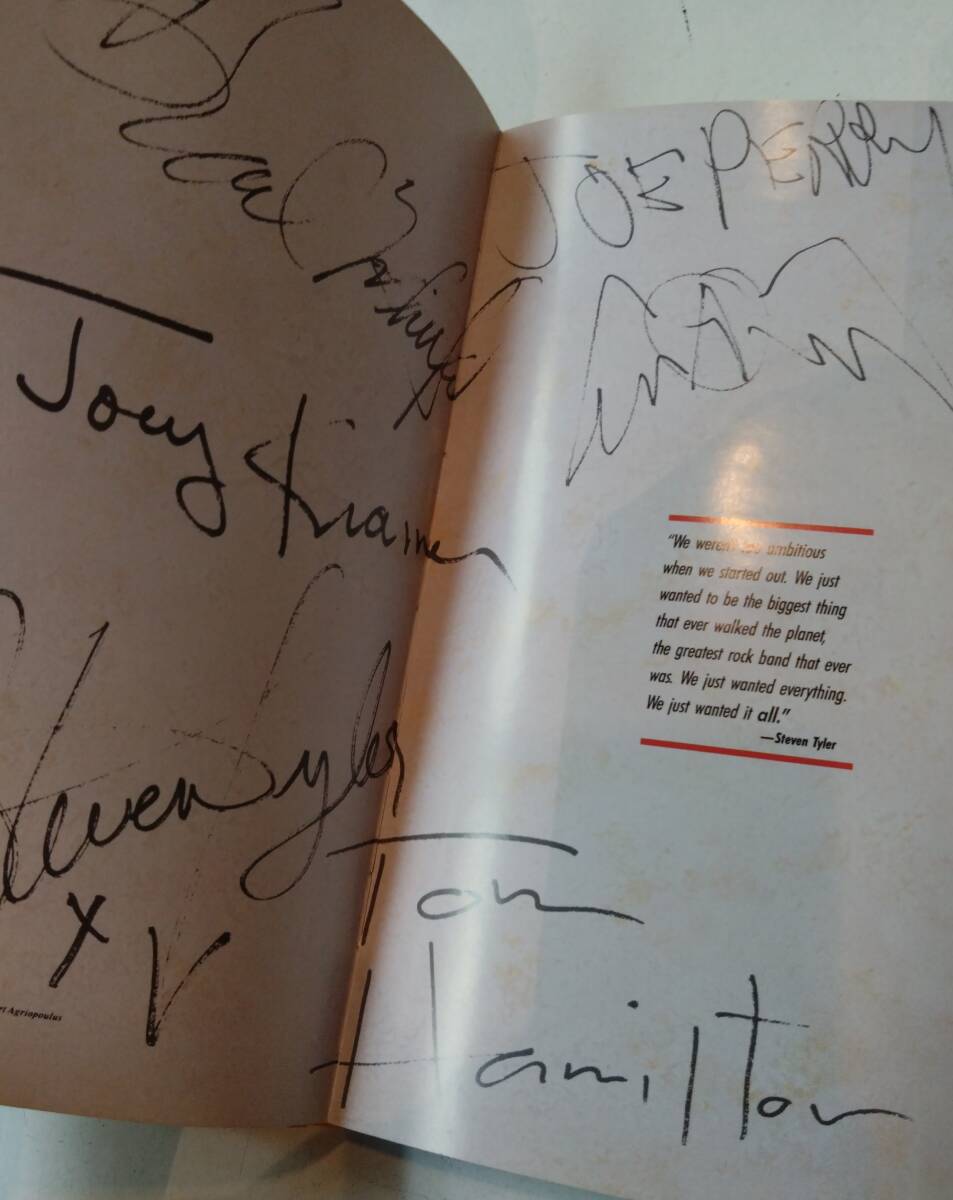 Joey Kramer
Steven Tyler
X
V
JOE PERRY
"We weren't too ambitious
when we started out. We just
wanted to be the biggest thing
that ever walked the planet,
the greatest rock band that ever
was. We just wanted everything.
We just wanted it all."
—Steven Tyler
Tom
Hamilton
Agriopoulus